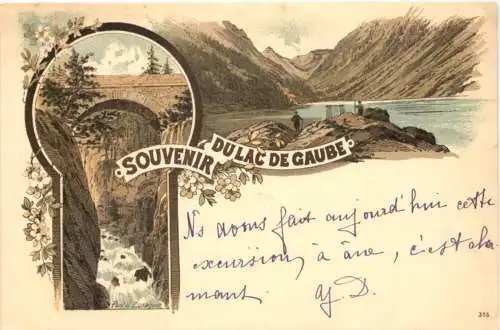 SOUVENIR
DU LAC DE GAUBE
Ns avons fait aujourd'hui cette
excursion, à âne, c'est cha
mant.
Y. D.
315